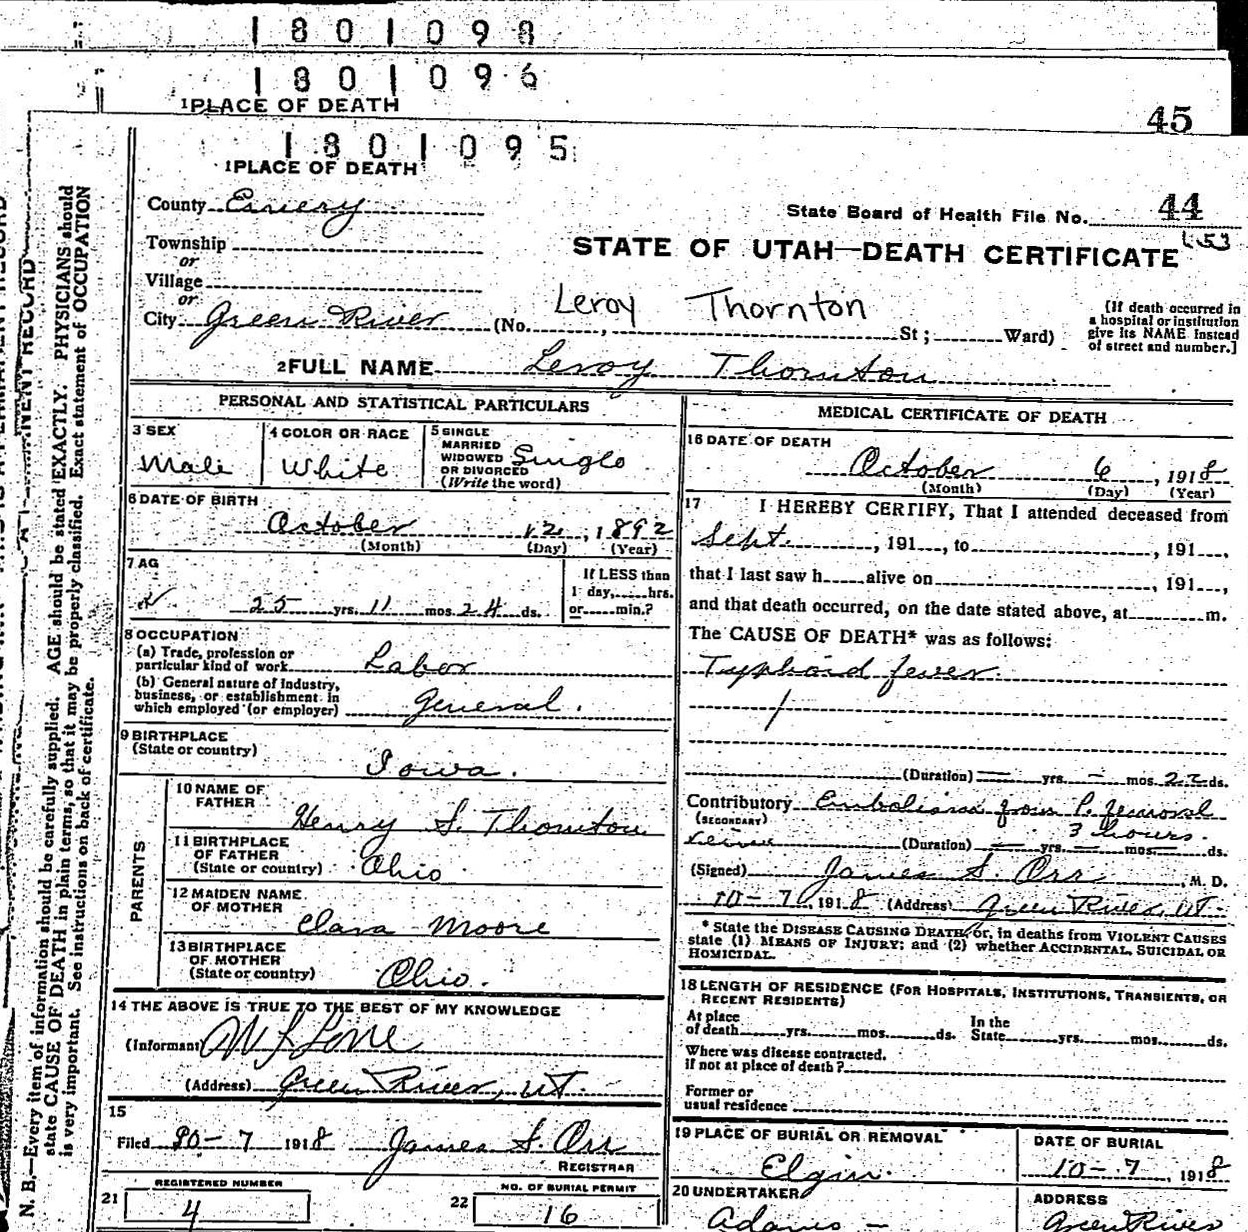 1801098
1801096
1PLACE OF DEATH
45
1801095
1PLACE OF DEATH
County Emery
State Board of Health File No. 44
Township
or
STATE OF UTAH—DEATH CERTIFICATE
Village
or
Leroy Thornton
City Green River (No. , St ; Ward)
[If death occurred in
a hospital or institution
give its NAME instead
of street and number.]
2FULL NAME Leroy Thornton
PERSONAL AND STATISTICAL PARTICULARS
3 SEX
Male
4 COLOR OR RACE
White
5 SINGLE
MARRIED
WIDOWED
OR DIVORCED
(Write the word)
Single
6 DATE OF BIRTH
October 12, 1892
(Month) (Day) (Year)
7 AG
25 yrs. 11 mos. 24 ds.
If LESS than
1 day, hrs.
or min.?
8 OCCUPATION
(a) Trade, profession or
particular kind of work Labor
(b) General nature of Industry,
business, or establishment in
which employed (or employer) General.
9 BIRTHPLACE
(State or country)
Iowa.
PARENTS
10 NAME OF
FATHER
Henry S. Thornton
11 BIRTHPLACE
OF FATHER
(State or country) Ohio
12 MAIDEN NAME
OF MOTHER
Clara Moore
13 BIRTHPLACE
OF MOTHER
(State or country) Ohio.
14 THE ABOVE IS TRUE TO THE BEST OF MY KNOWLEDGE
(Informant
(Address) Green River, UT.
15
Filed 10-7 1918 James S. Orr
REGISTRAR
21 REGISTERED NUMBER
4
22 NO. OF BURIAL PERMIT
16
MEDICAL CERTIFICATE OF DEATH
16 DATE OF DEATH
October 6, 1918
(Month) (Day) (Year)
17 I HEREBY CERTIFY, That I attended deceased from
Sept. , 191 , to , 191 ,
that I last saw h alive on , 191 ,
and that death occurred, on the date stated above, at m.
The CAUSE OF DEATH* was as follows:
Typhoid fever.
(Duration) — yrs. — mos. 22 ds.
Contributory Embolism from P. femoral
(SECONDARY) 3 hours.
(Duration) — yrs. — mos. — ds.
(Signed) James S. Orr, M. D.
10-7, 1918 (Address) Green River, UT.
* State the DISEASE CAUSING DEATH, or, in deaths from VIOLENT CAUSES
state (1) MEANS OF INJURY; and (2) whether ACCIDENTAL, SUICIDAL OR
HOMICIDAL.
18 LENGTH OF RESIDENCE (FOR HOSPITALS, INSTITUTIONS, TRANSIENTS, OR
RECENT RESIDENTS)
At place
of death yrs. mos. ds. In the
State yrs. mos. ds.
Where was disease contracted.
if not at place of death?
Former or
usual residence
19 PLACE OF BURIAL OR REMOVAL
Elgin.
DATE OF BURIAL
10-7, 1918
20 UNDERTAKER
Adams
ADDRESS
Green River
N. B.—Every item of information should be carefully supplied. AGE should be stated EXACTLY. PHYSICIANS should
state CAUSE OF DEATH in plain terms, so that it may be properly classified. Exact statement of OCCUPATION
is very important. See instructions on back of certificate.